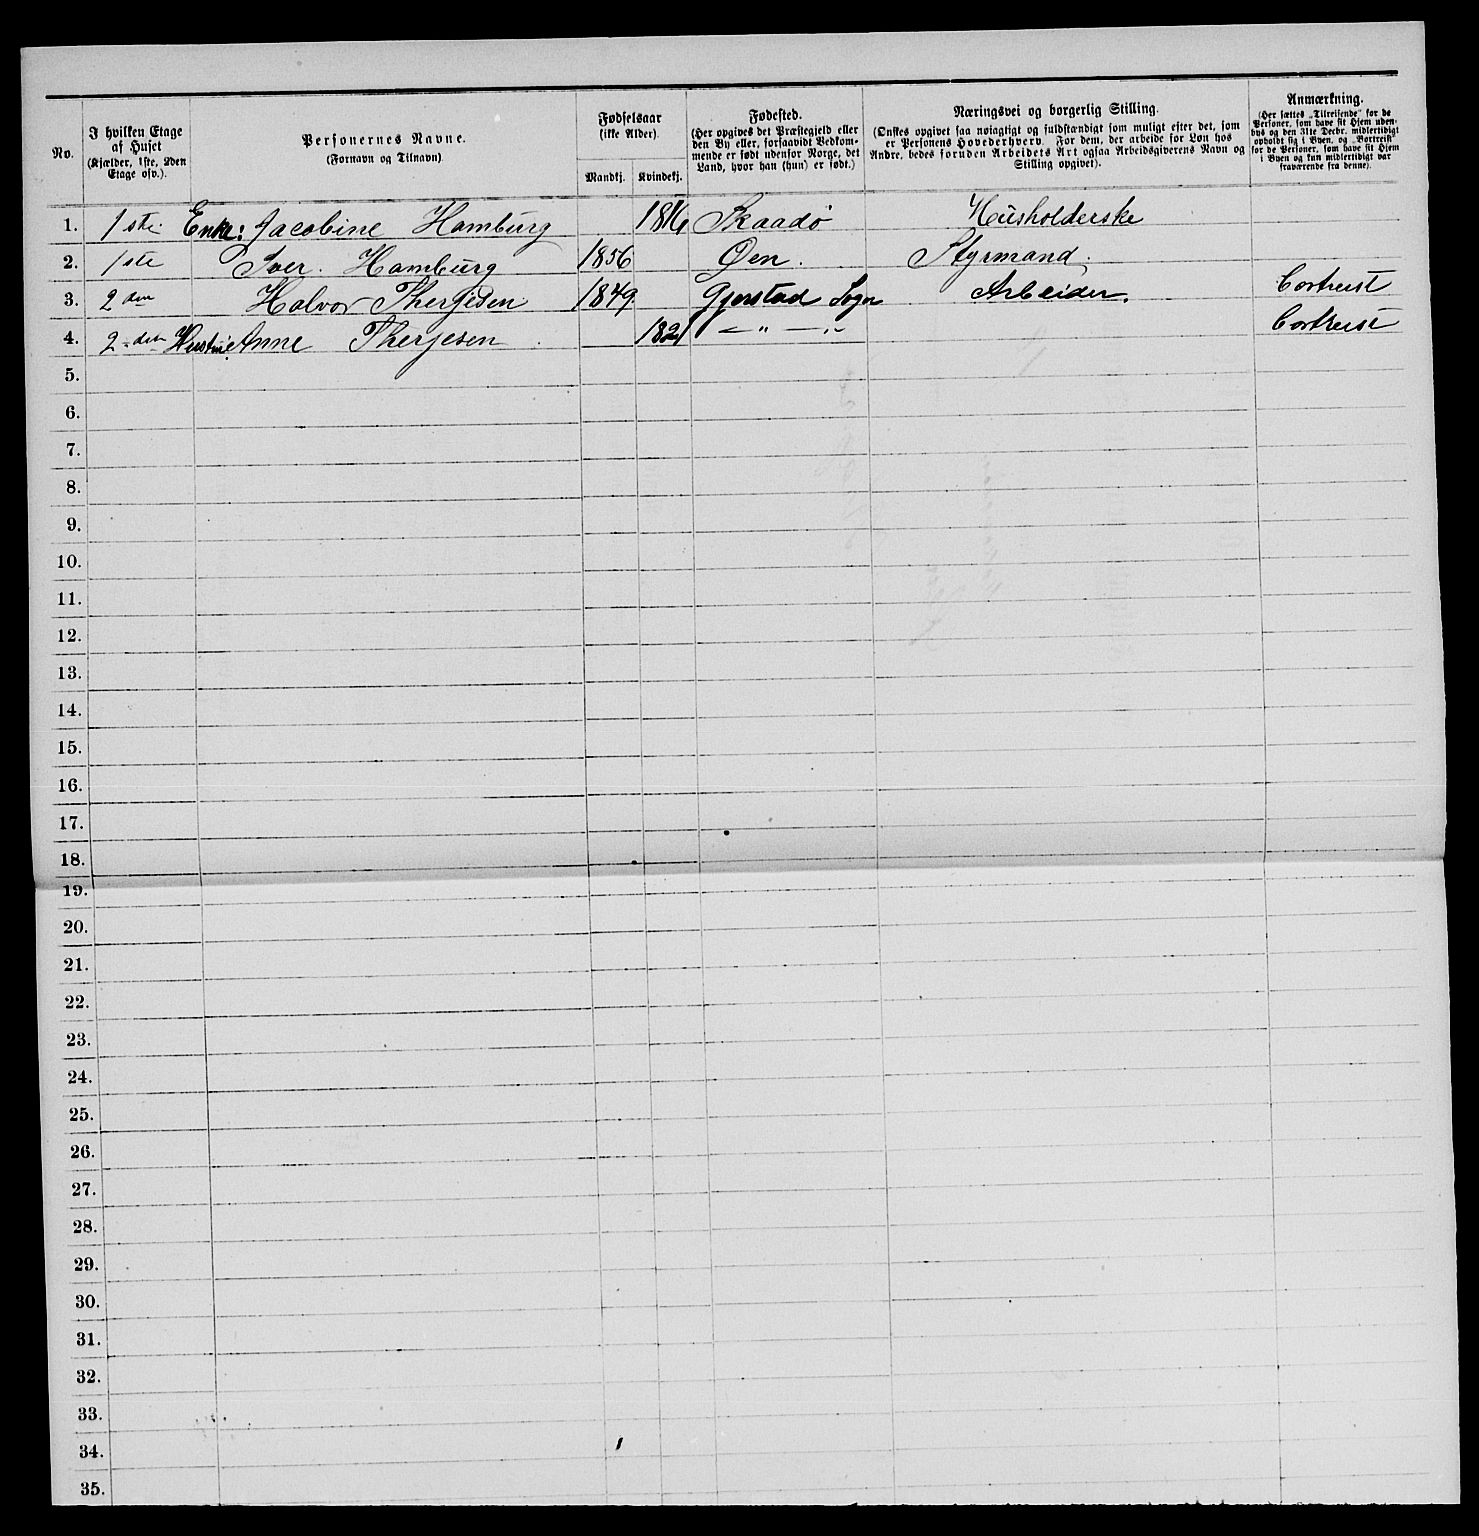 No.
I hvilken Etage af Huset (Kjælder, 1ste, 2den Etage osv.).
Personernes Navne. (Fornavn og Tilnavn)
Fødselsaar (ikke Alder).
Mandkj. Kvindekj.
Fødested. (Her opgives det Præstegjeld eller den By eller, forsaavidt Vedkommende er født udenfor Norge, det Land, hvor han (hun) er født.)
Næringsvei og borgerlig Stilling. (Ønskes opgivet saa nøiagtigt og fuldstændigt som muligt efter det, som er Personens Hovederhverv. For dem, der arbeide for Løn hos Andre, bedes foruden Arbeidets Art ogsaa Arbeidsgiverens Navn og Stilling opgivet).
Anmærkning. (Her sættes „Tilreisende" for de Personer, som have sit Hjem udenbys og den 31te Decbr. midlertidigt opholdt sig i Byen, og „Bortreist" for de Personer, som have sit Hjem i Byen og kun midlertidigt var fraværende fra denne).
1. 1ste Enke: Jacobine Hamburg 1816 Skaadø Husholderske
2. 1ste Iver. Hamburg 1856 Øen. Styrmand.
3. 2den Halvor Therjesen 1849 Gjerstad Sogn Arbeider. bortreist
4. 2den Hustrue Anne Therjesen 1821 — " — " bortreist
5.
6.
7.
8.
9.
10.
11.
12.
13.
14.
15.
16.
17.
18.
19.
20.
21.
22.
23.
24.
25.
26.
27.
28.
29.
30.
31.
32.
33.
34.
35.